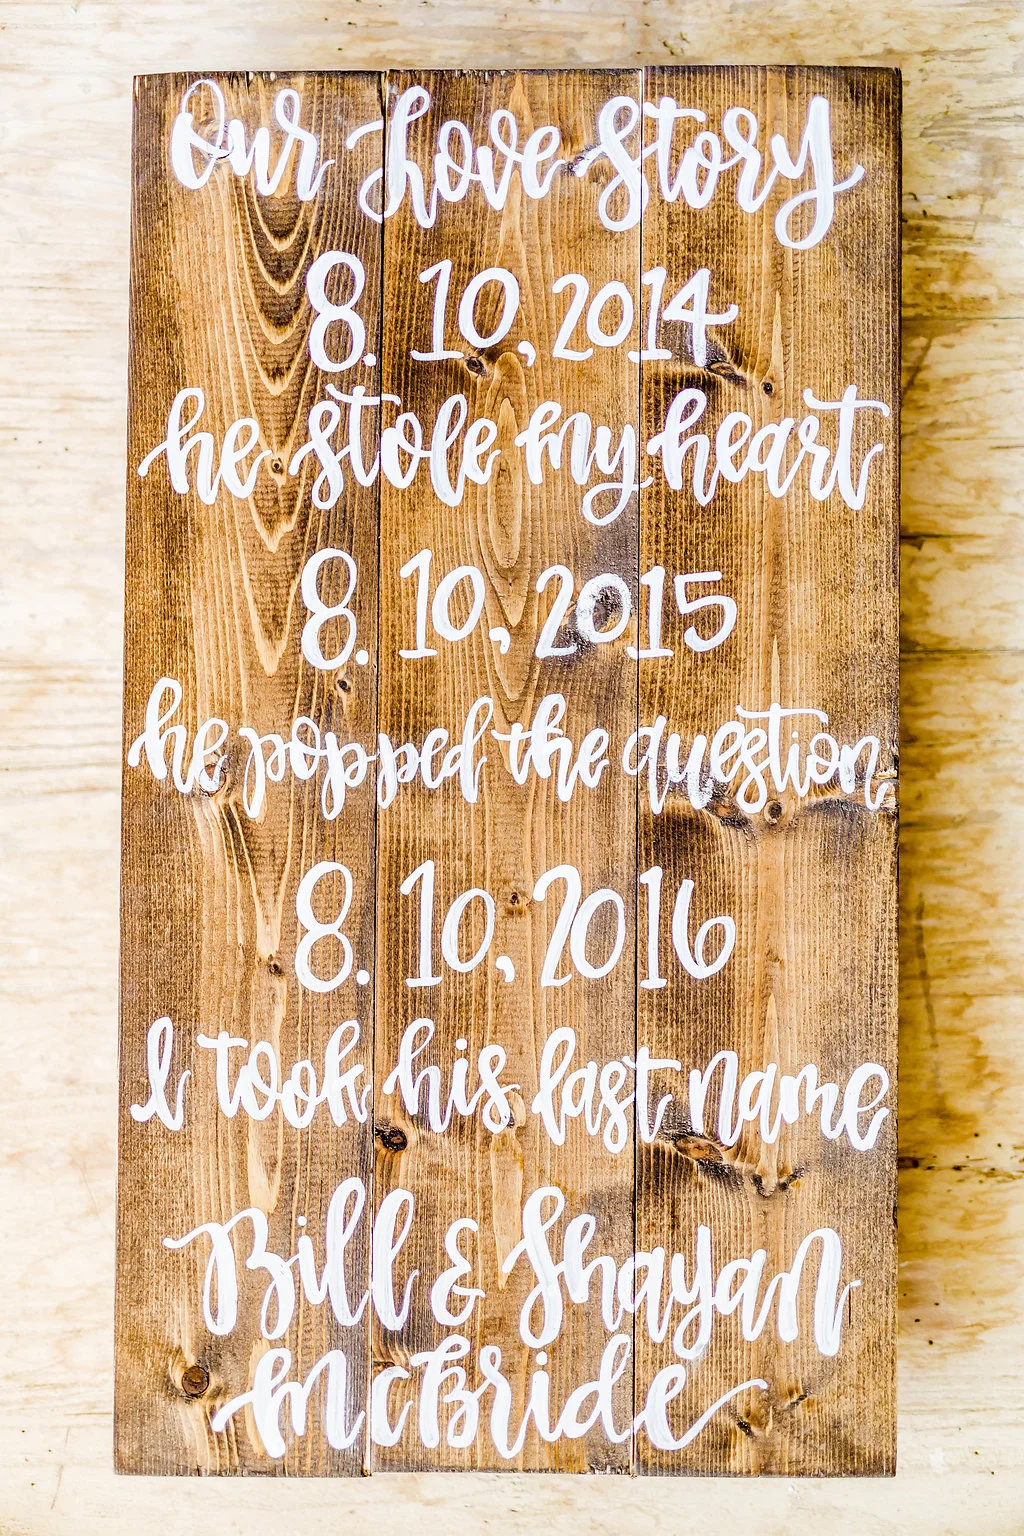 Our Love Story
8. 10, 2014
he stole my heart
8. 10, 2015
he popped the question
8. 10, 2016
I took his last name
Bill & Shayan
McBride